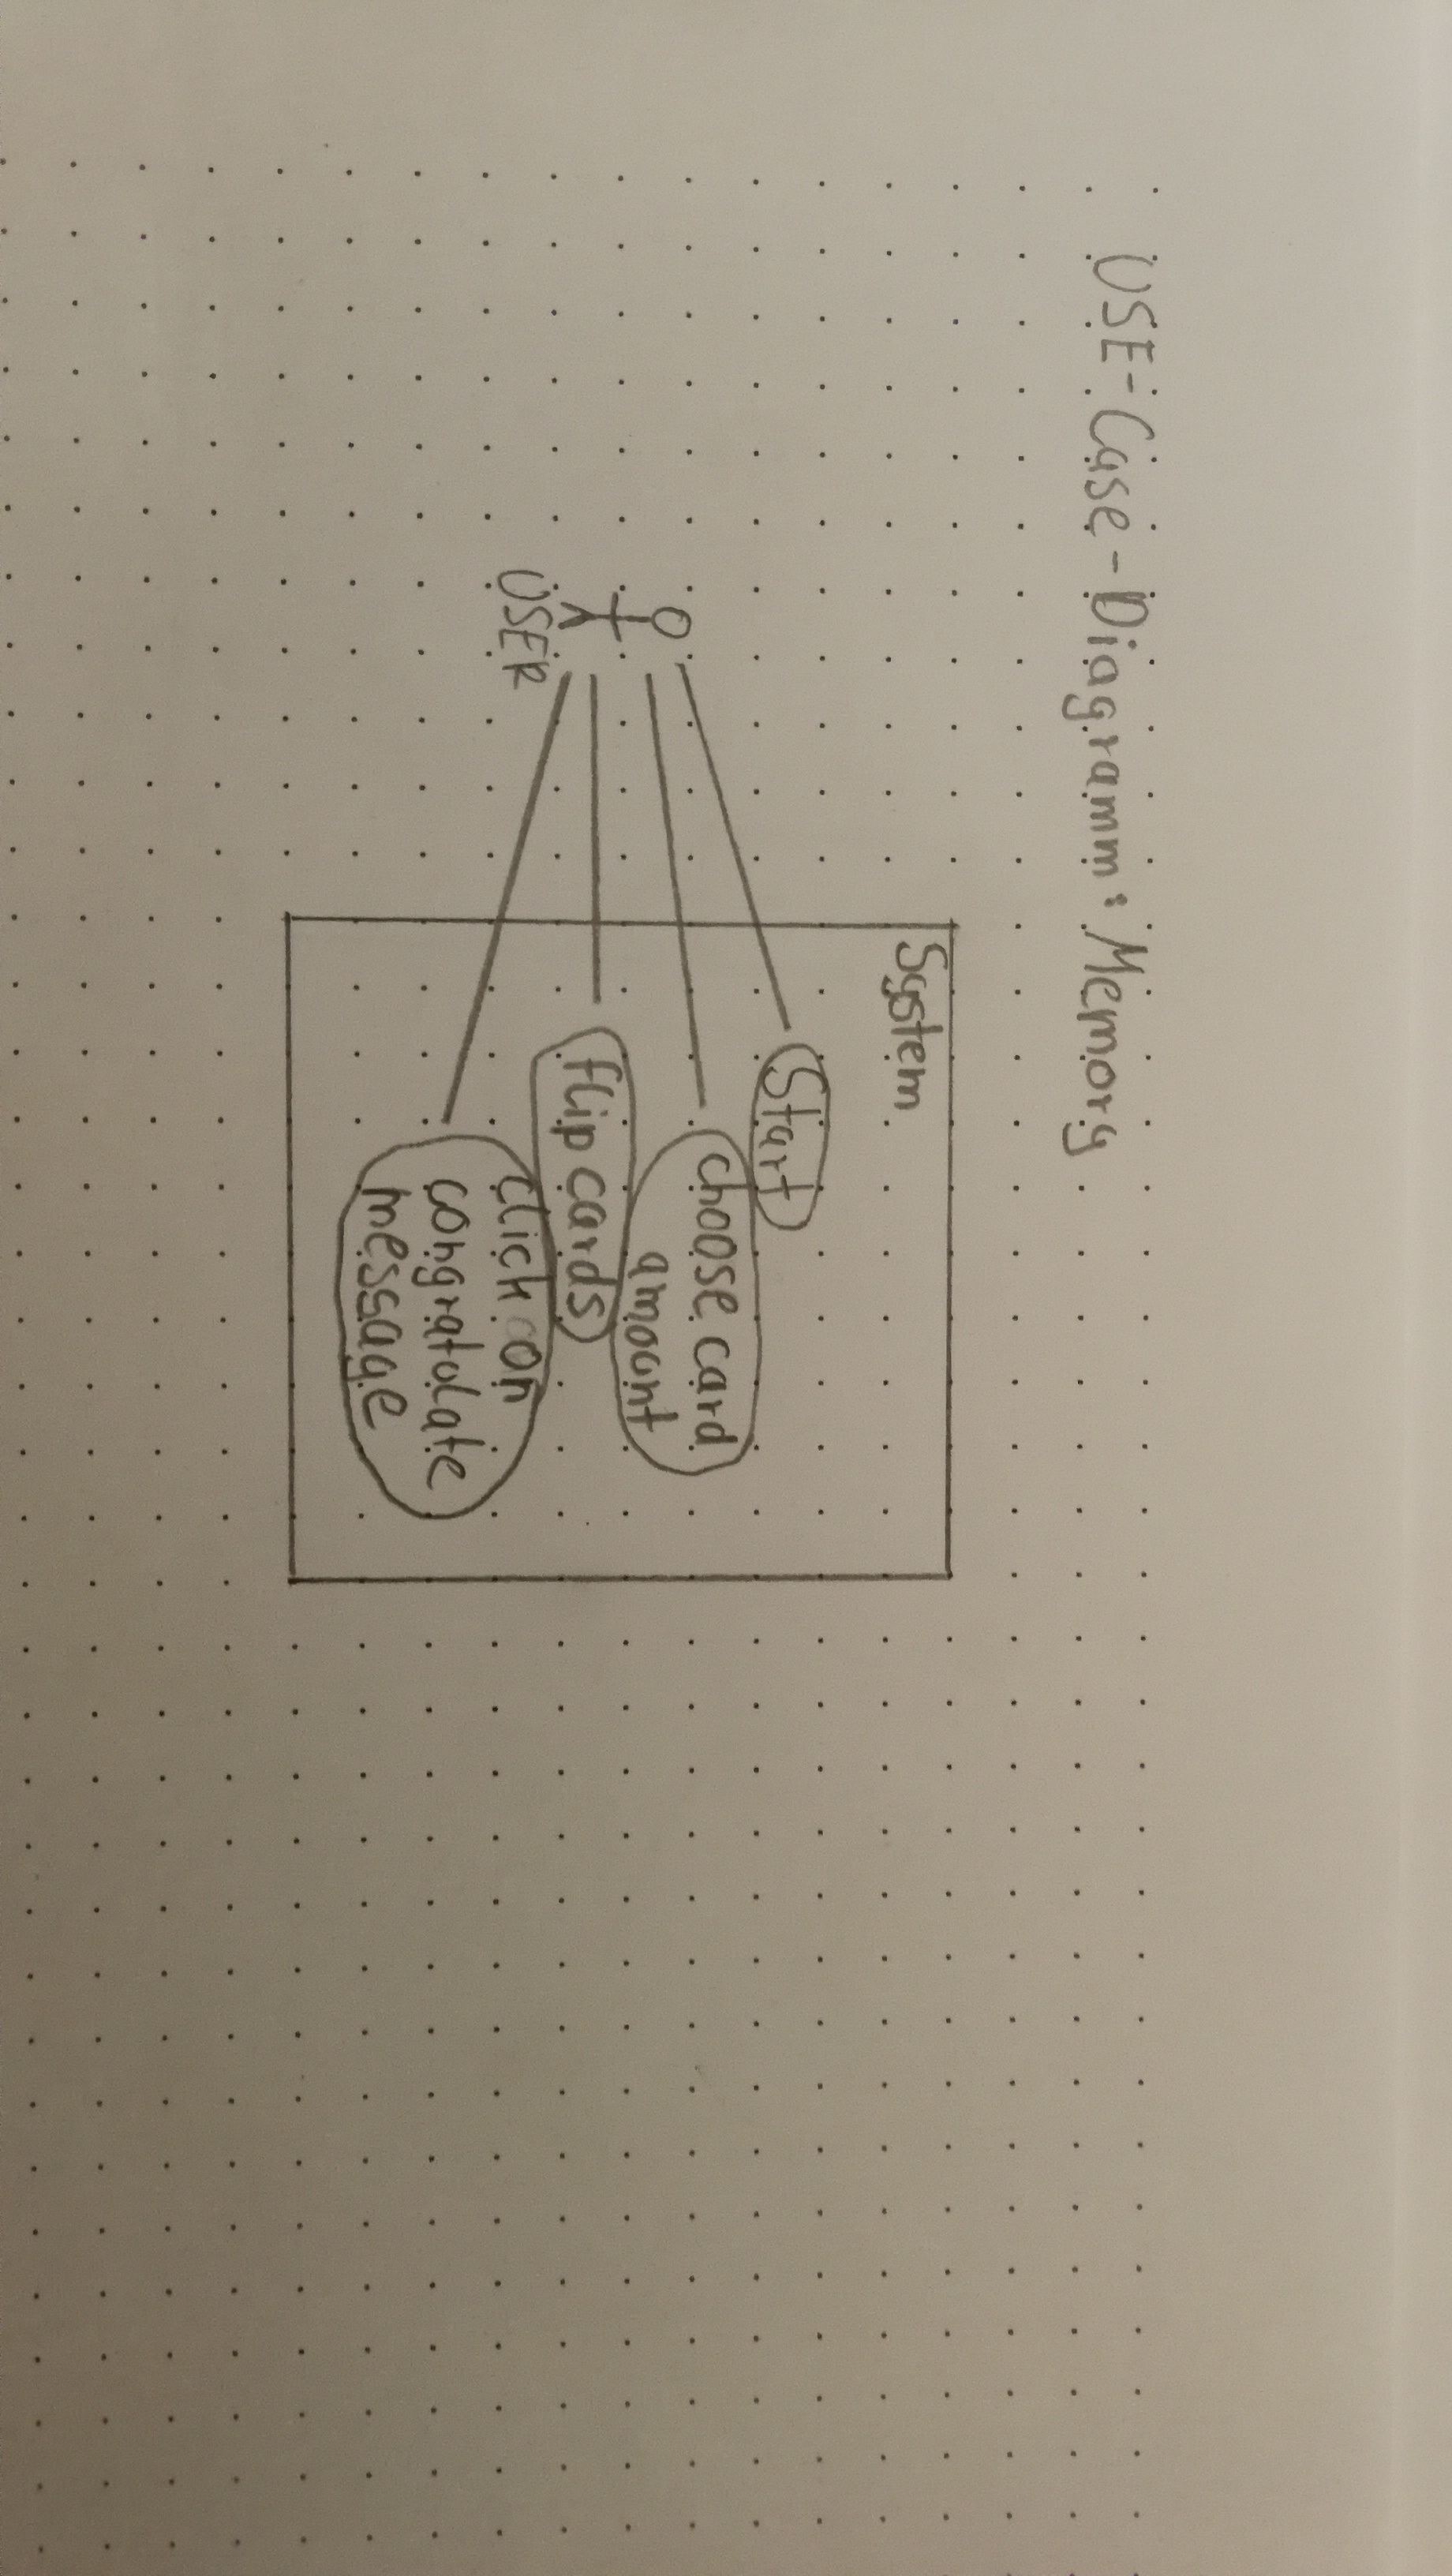 USE-Case-Diagramm: Memory
System
Start
choose card
amount
flip cards
USER
click on
congratulate
message